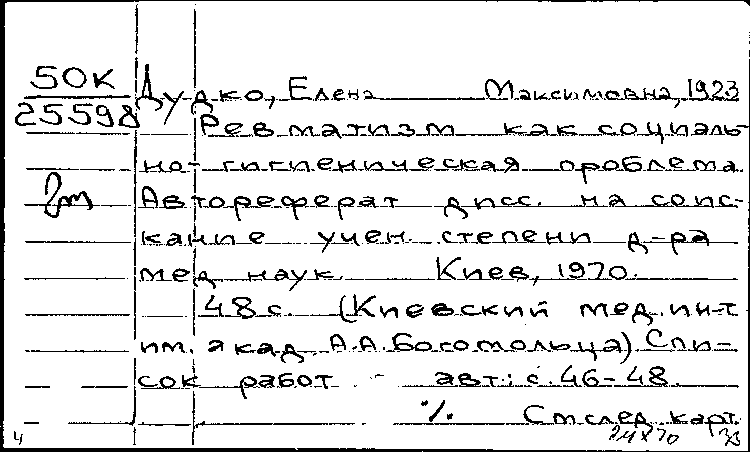 50К
25598
Дудко, Елена Максимовна, 1923
Ревматизм как социаль-
но-гигиеническая проблема.
Автореферат дисс. на соис-
кание учен. степени д-ра
мед наук. Киев, 1970.
48 с. (Киевский мед. ин-т
им. акад. А.А. Богомольца) Спи-
сок работ авт.: с. 46-48.
·/. См след. карт.
4